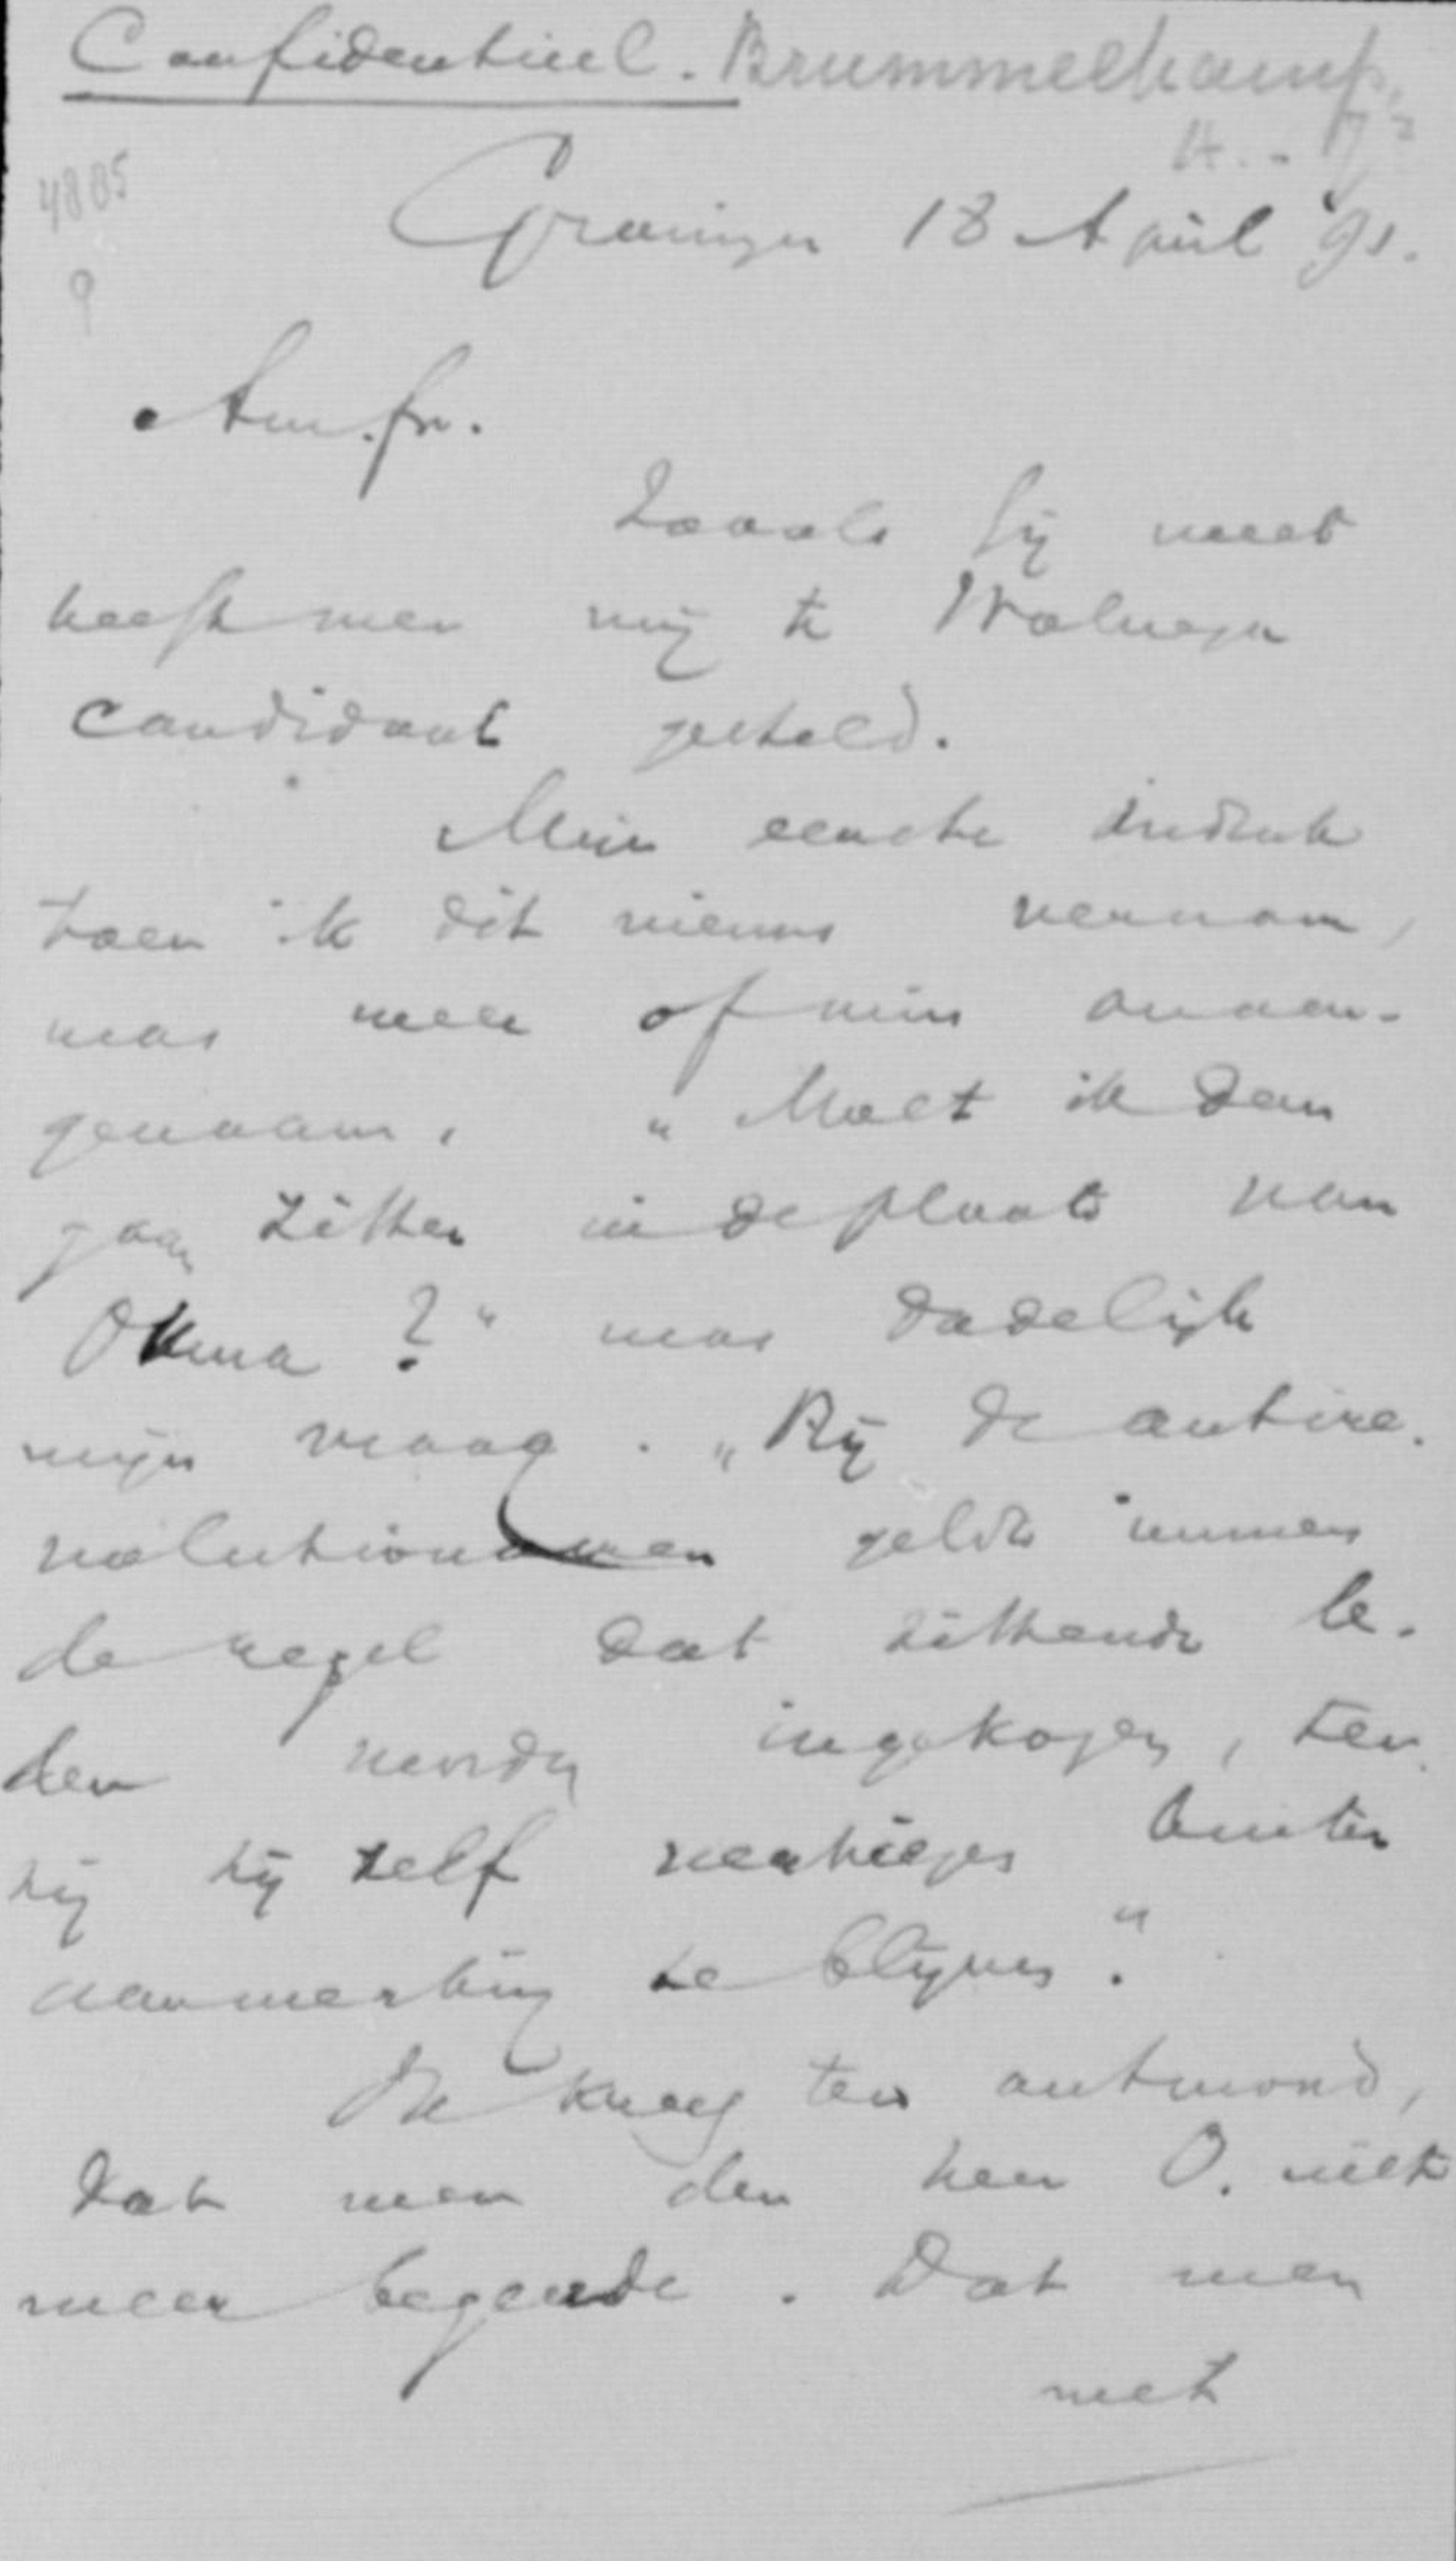 Confidentieel. Brummelkamp,
4885
Groningen 18 April '91.
9
Am. fr.
Zooals gij weet
heeft men mij te Wolvega
candidaat gesteld.
Mijn eerste indruk
toen ik dit nieuws vernam,
was meer of min onaan-
genaam. „Moet ik dan
gaan zitten in de plaats van
Okma?" was dadelijk
mijn vraag. „Bij de antire-
volutionairen geldt immers
de regel dat zittende le-
den worden ingekozen, ten-
zij zij zelf verkiezen buiten
aanmerking te blijven."
Ik kreeg ten antwoord,
dat men den heer O. niet
meer begeerde. Dat men
met